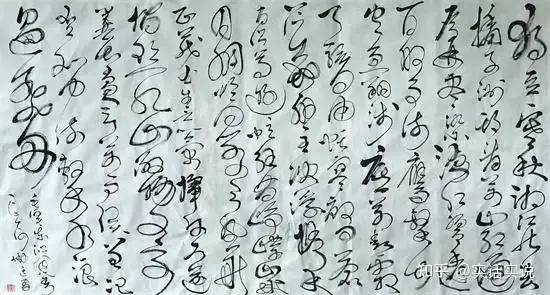 独立寒秋湘江北去
橘子洲头看万山红遍
层林尽染漫江碧透
百舸争流鹰击长
空鱼翔浅底万类霜
天竞自由怅寥廓问苍
茫大地谁主沉浮携来
百侣曾游忆往昔峥嵘岁
月稠恰同学少年风华
正茂书生意气挥斥方遒
指点江山激扬文字
粪土当年万户侯曾记
否到中流击水浪
遏飞舟
知乎 @实话实说